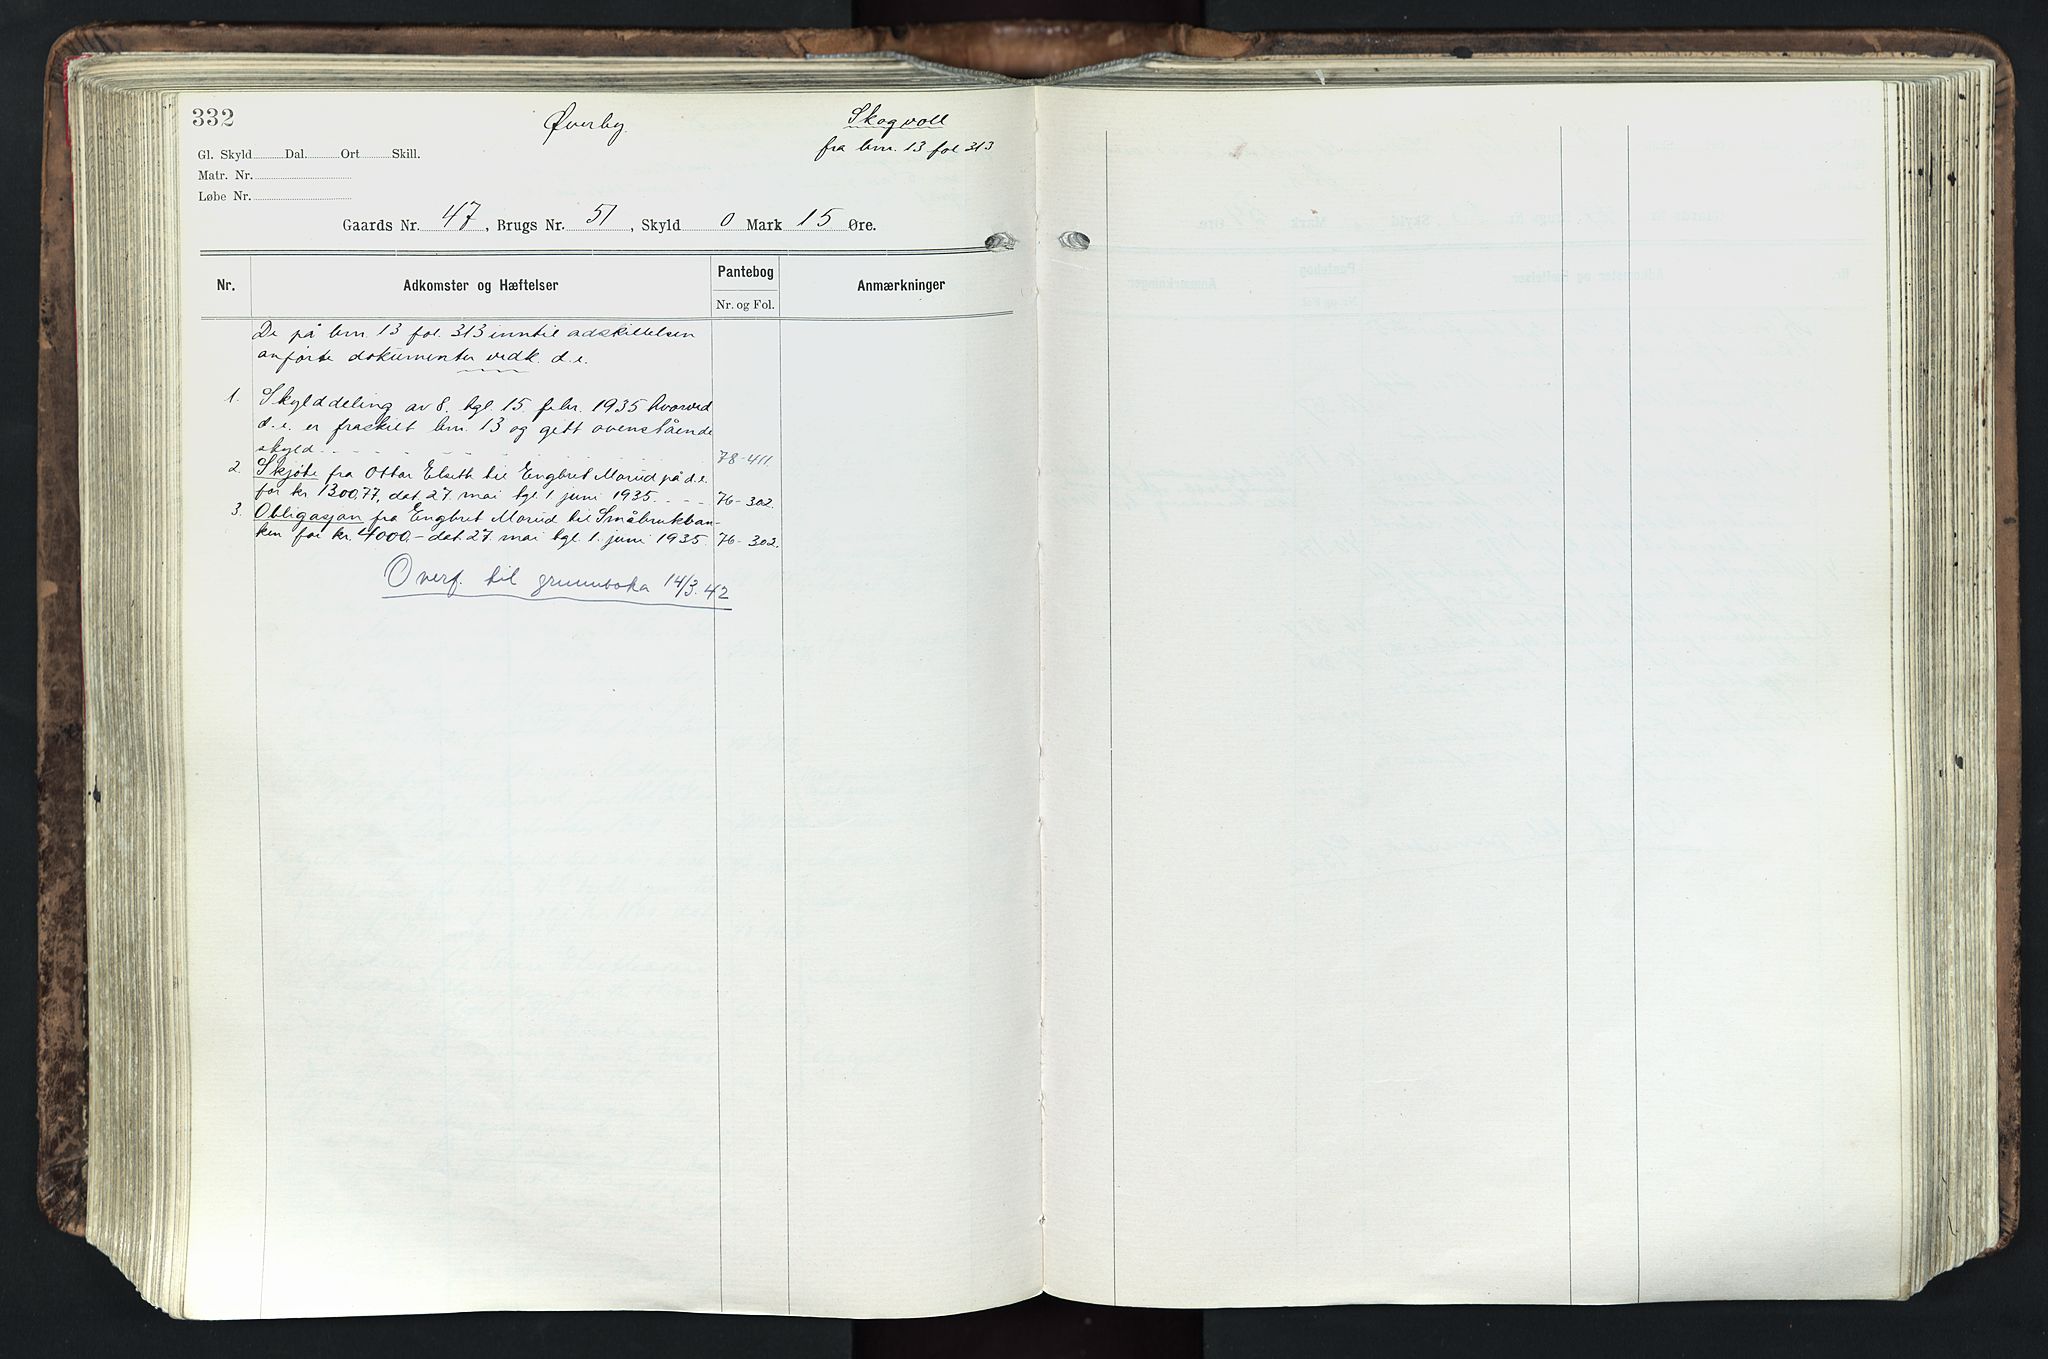 332
Øverby.
Skogvoll
fra brn. 13 fol 313
Gl. Skyld Dal. Ort Skill.
Matr. Nr.
Løbe Nr.
Gaards Nr. 47, Brugs Nr. 51, Skyld 0 Mark 15 Øre.
Nr. Adkomster og Hæftelser Pantebog Anmærkninger
Nr. og Fol.
De på brn. 13 fol. 313 inntil adskillelsen
anførte dokumenter vedk. d.e.
1. Skylddeling av 8. tgl. 15. febr. 1935 hvorved
d.e. er fraskilt brn. 13 og gitt ovenstående
skyld. 78-411.
2. Skjøte fra Ottar Elseth til Engbret Morud på d.e.
for kr 1300,77, dat. 27. mai tgl. 1 juni 1935. 76-302.
3. Obligasjon fra Engbret Morud til Småbrukban-
ken for kr. 4000.- dat. 27. mai tgl. 1. juni 1935. 76-302.
Overf. til grunnboka 14/3.42